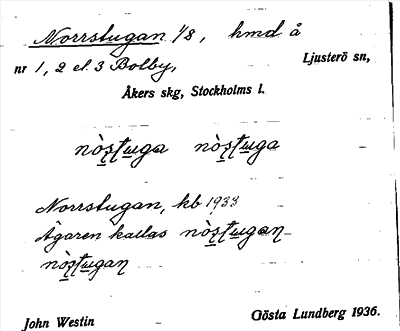 Norrstugan 1/8, hmd å
nr 1, 2 el. 3 Bolby, Ljusterö sn,
Åkers skg, Stockholms l.
nòs̨t̨u̲ga nòs̨t̨u̲ga
Norrstugan, kb 1933
Ägaren kallas nòs̨t̨u̲gan
nòs̨t̨u̲gan
John Westin Gösta Lundberg 1936.